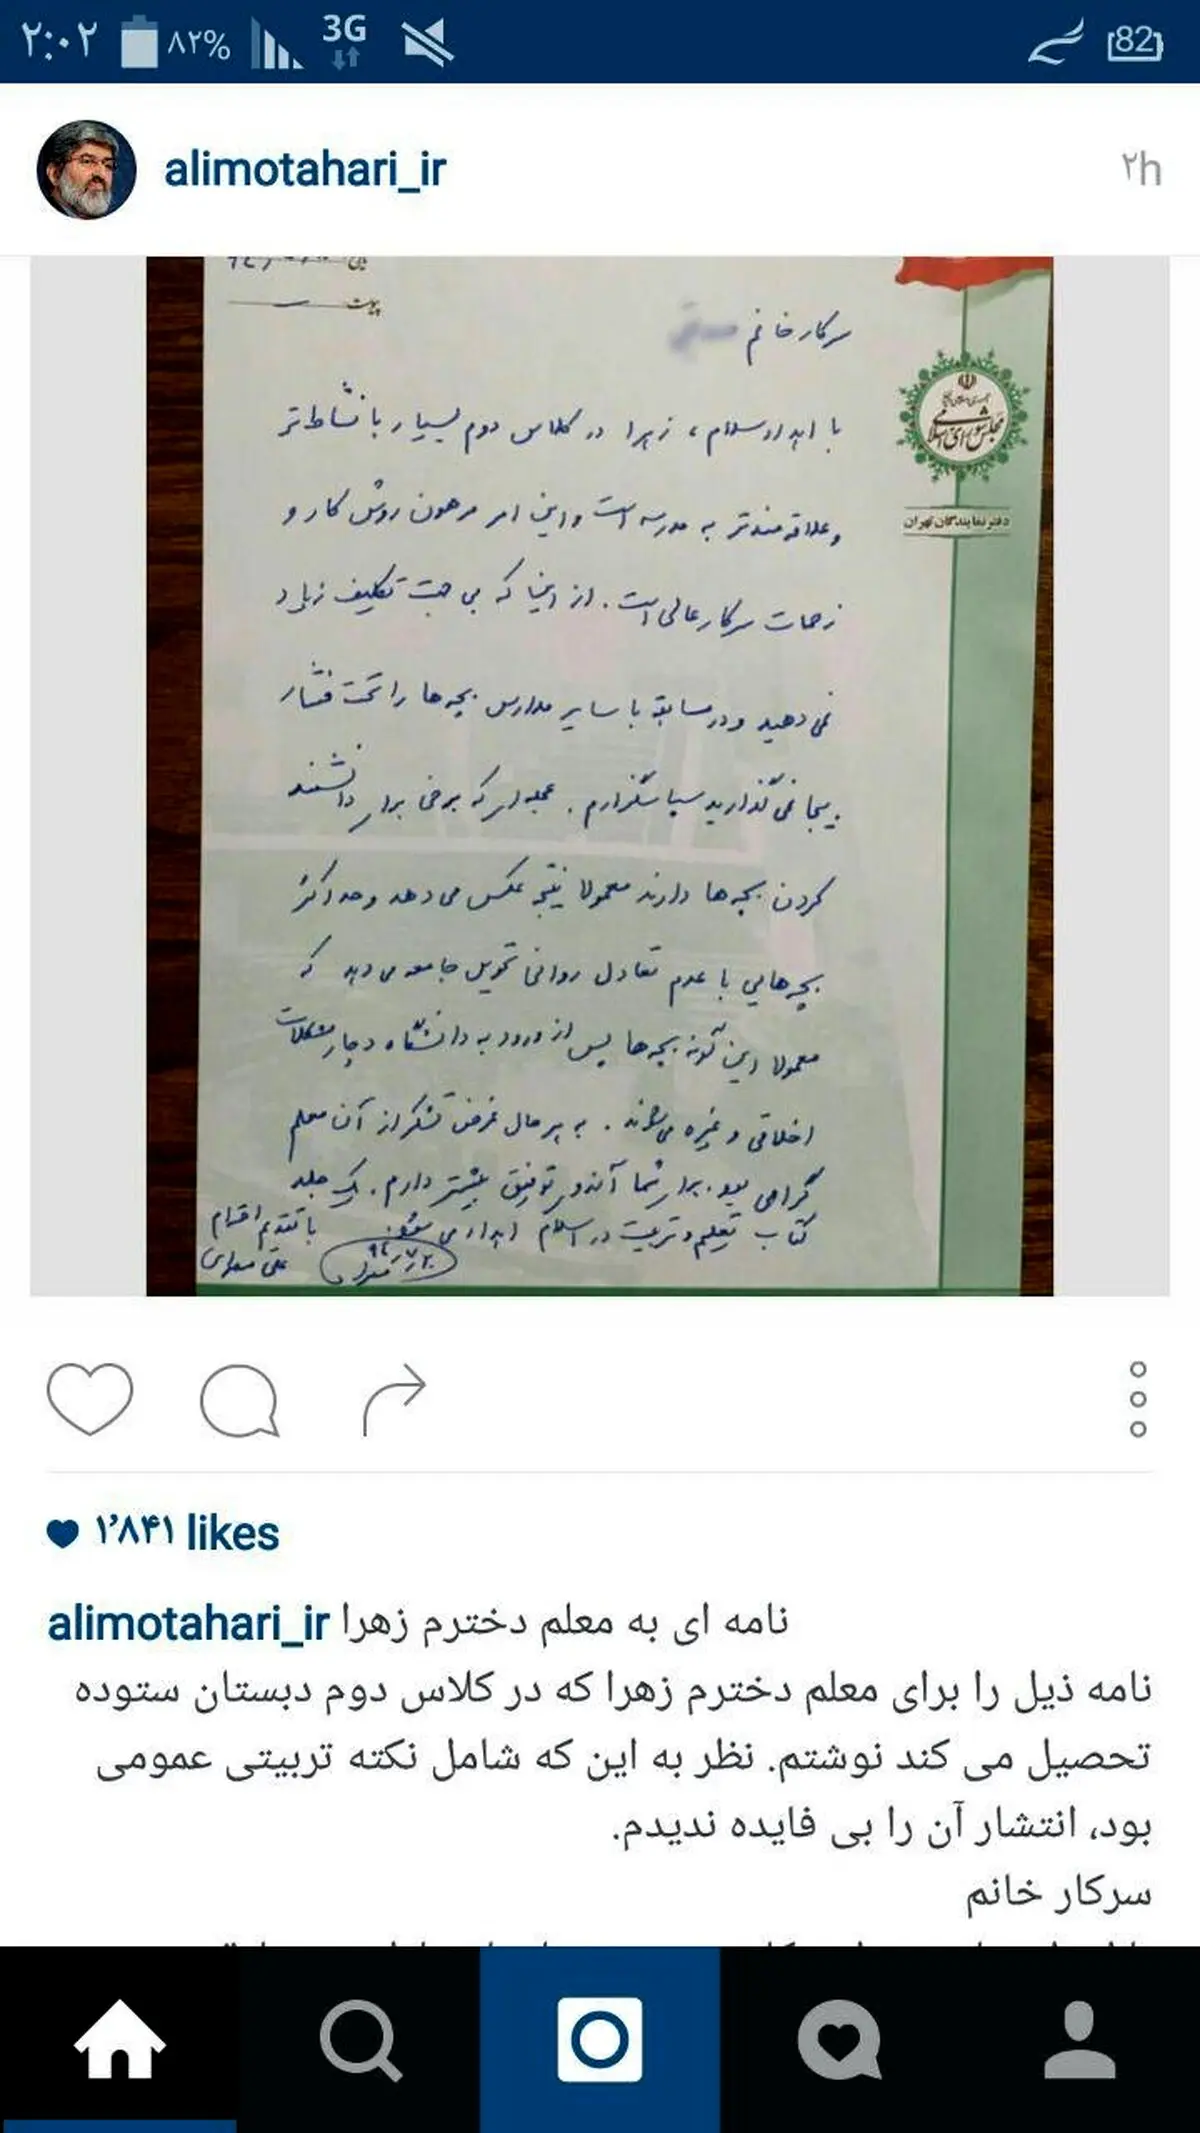 ۲:۰۲ ۸۲% 3G 82
alimotahari_ir ۲h
پیوست
سرکار خانم
جمهوری اسلامی ایران
مجلس شورای اسلامی
دفتر نمایندگان تهران
با اهداء سلام، زهرا در کلاس دوم بسیار با نشاط‌تر
و علاقه‌مندتر به مدرسه است و این امر مرهون روش کار و
زحمات سرکارعالی است. از اینجا که بی جهت تکلیف زیاد
نمی‌دهید و در مسابقه با سایر مدارس بچه‌ها را تحت فشار
بیجا نمی‌گذارید سپاسگزارم. عجله‌ای که برخی برای دانشمند
کردن بچه‌ها دارند معمولا نتیجه عکس می‌دهد و حداکثر
بچه‌هایی با عدم تعادل روانی تحویل جامعه می‌دهد که
معمولا این گونه بچه‌ها پس از ورود به دانشگاه دچار مشکلات
اخلاقی و غیره می‌شوند. به هر حال غرض تشکر از آن معلم
گرامی بود. برای شما آرزوی توفیق بیشتر دارم. یک جلد
کتاب تعلیم و تربیت در اسلام اهداء می‌شود.
با تقدیم احترام
علی مطهری
۱٬۸۴۱ likes
alimotahari_ir نامه ای به معلم دخترم زهرا
نامه ذیل را برای معلم دخترم زهرا که در کلاس دوم دبستان ستوده
تحصیل می کند نوشتم. نظر به این که شامل نکته تربیتی عمومی
بود، انتشار آن را بی فایده ندیدم.
سرکار خانم